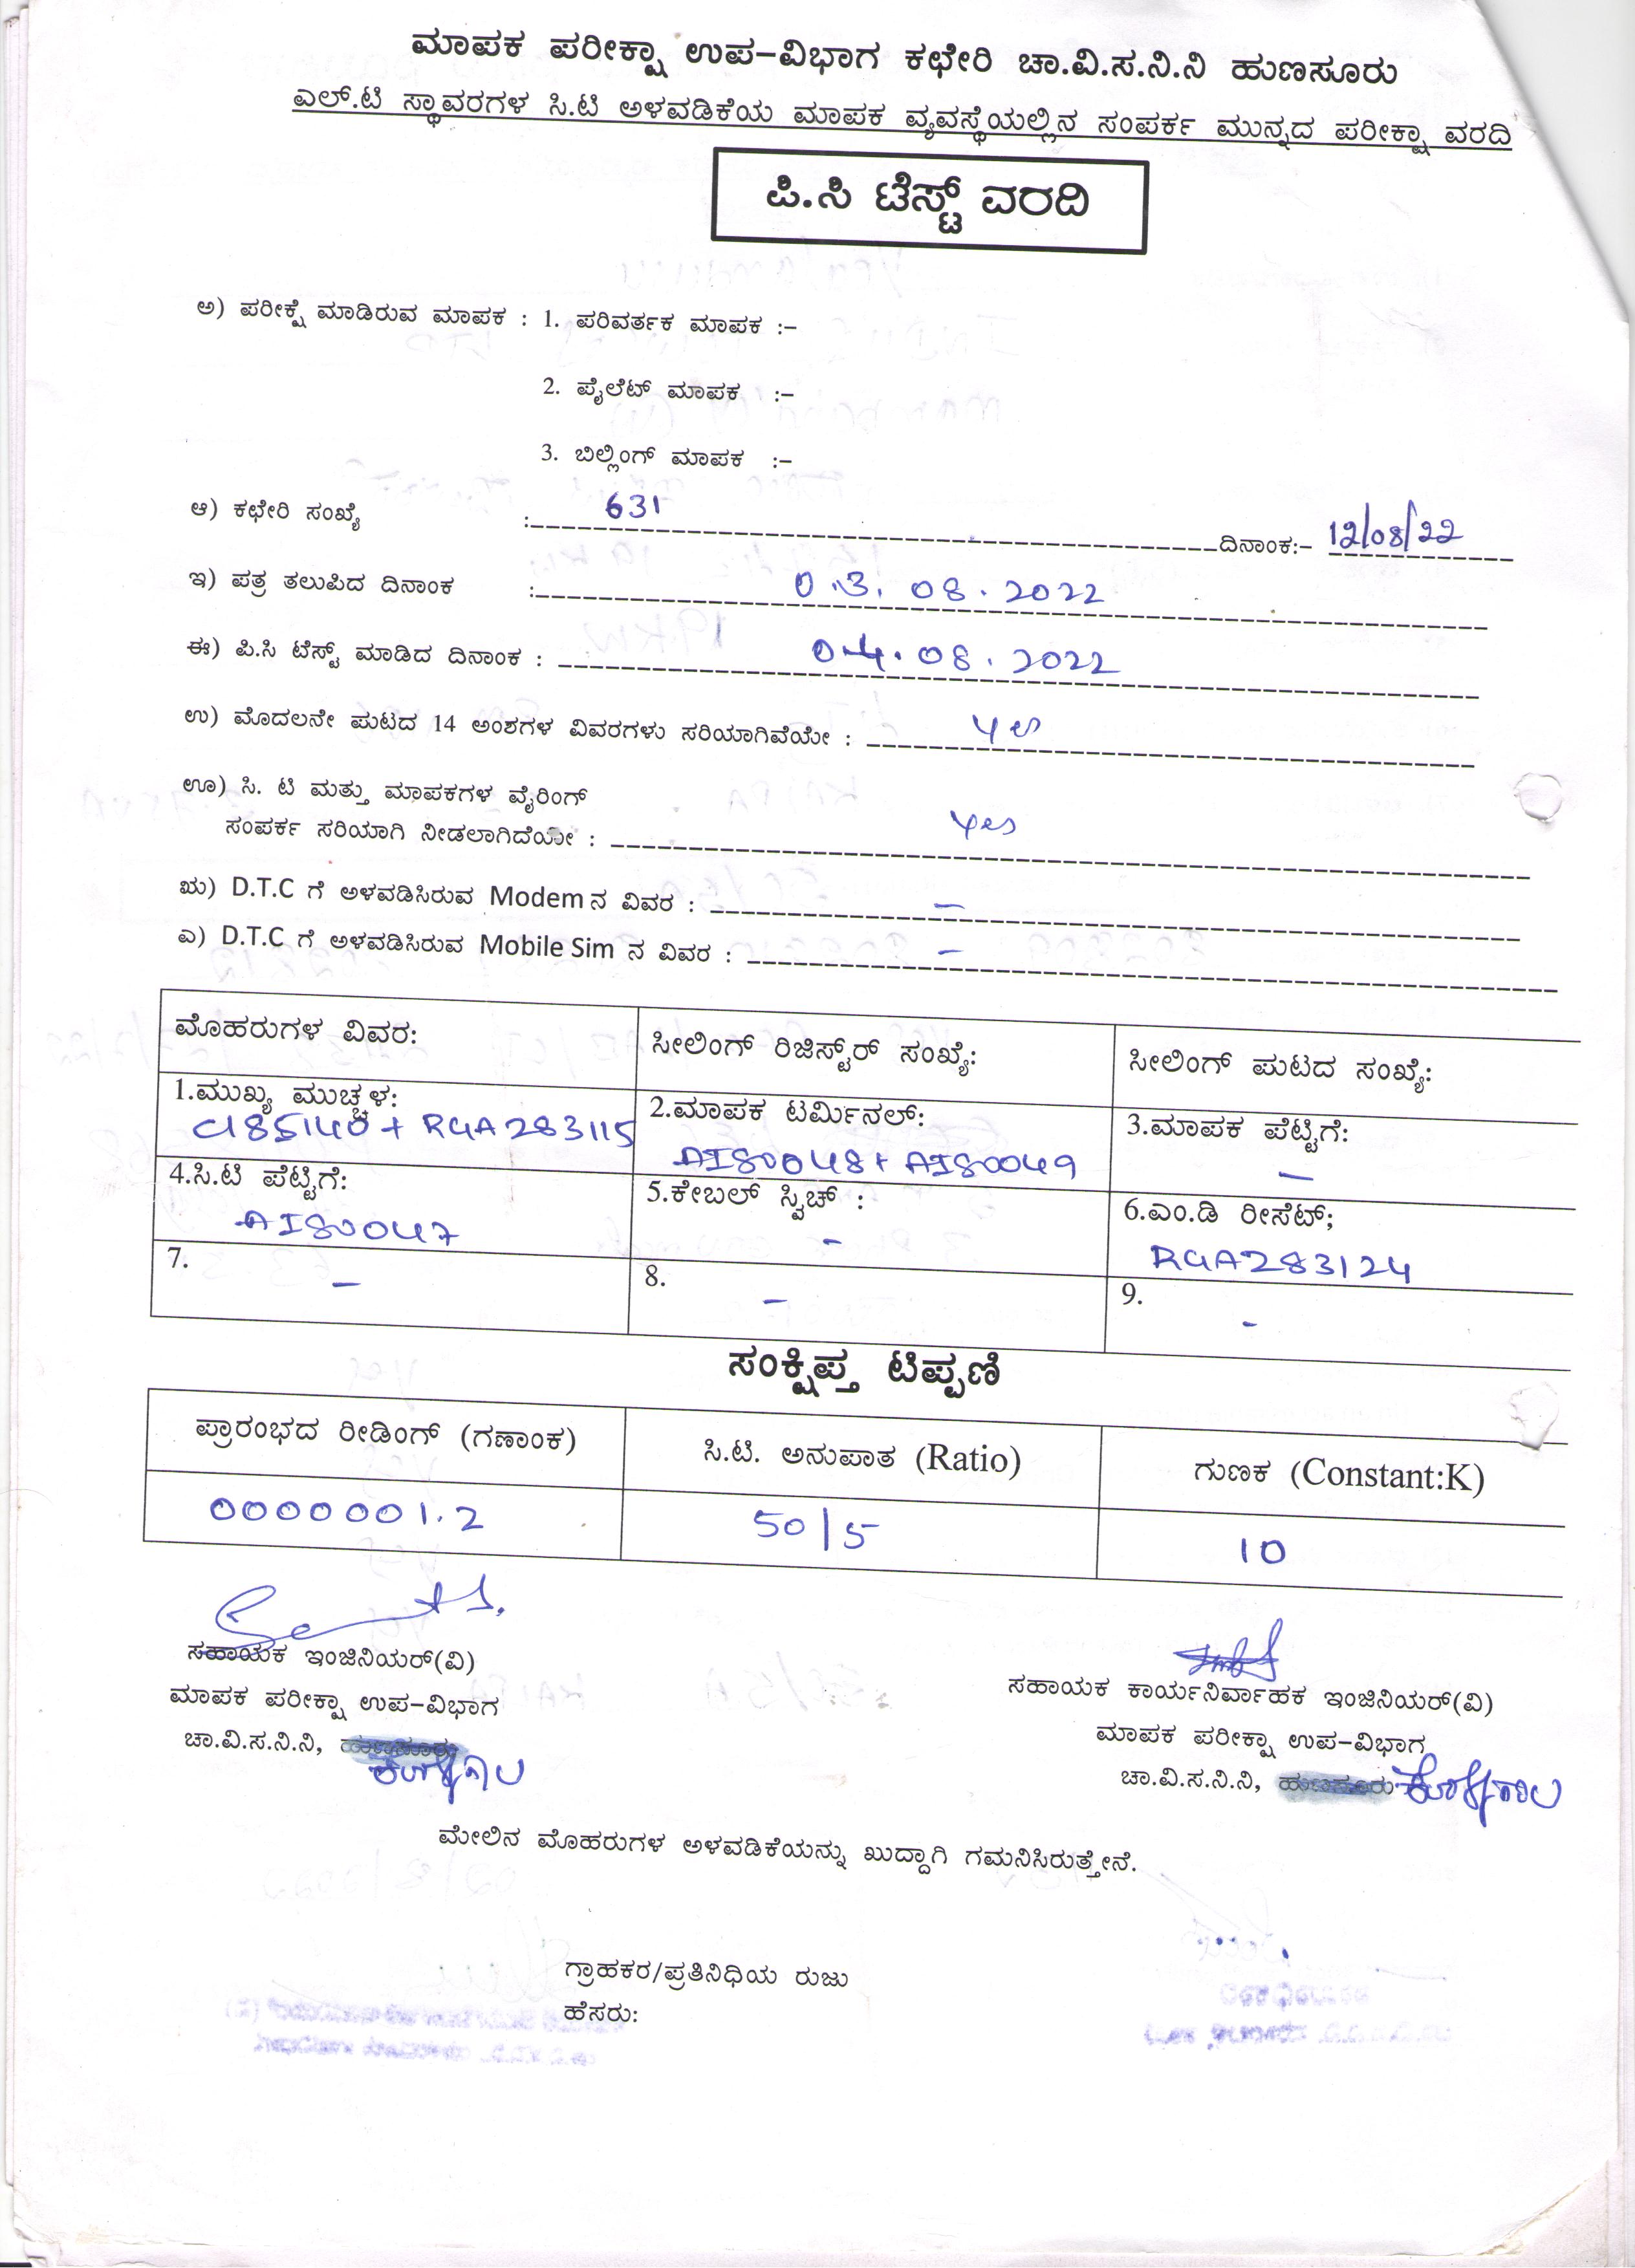 ಮಾಪಕ ಪರೀಕ್ಷಾ ಉಪ-ವಿಭಾಗ ಕಛೇರಿ ಚಾ.ವಿ.ಸ.ನಿ.ನಿ ಹುಣಸೂರು
ಎಲ್.ಟಿ ಸ್ಥಾವರಗಳ ಸಿ.ಟಿ ಅಳವಡಿಕೆಯ ಮಾಪಕ ವ್ಯವಸ್ಥೆಯಲ್ಲಿನ ಸಂಪರ್ಕ ಮುನ್ನದ ಪರೀಕ್ಷಾ ವರದಿ
ಪಿ.ಸಿ ಟೆಸ್ಟ್ ವರದಿ
ಅ) ಪರೀಕ್ಷೆ ಮಾಡಿರುವ ಮಾಪಕ : 1. ಪರಿವರ್ತಕ ಮಾಪಕ :-
2. ಪೈಲೆಟ್ ಮಾಪಕ :-
3. ಬಿಲ್ಲಿಂಗ್ ಮಾಪಕ :-
ಆ) ಕಛೇರಿ ಸಂಖ್ಯೆ : 631 ದಿನಾಂಕ:- 12/08/22
ಇ) ಪತ್ರ ತಲುಪಿದ ದಿನಾಂಕ : 03.08.2022
ಈ) ಪಿ.ಸಿ ಟೆಸ್ಟ್ ಮಾಡಿದ ದಿನಾಂಕ : 04.08.2022
ಉ) ಮೊದಲನೇ ಪುಟದ 14 ಅಂಶಗಳ ವಿವರಗಳು ಸರಿಯಾಗಿವೆಯೇ : yes
ಊ) ಸಿ. ಟಿ ಮತ್ತು ಮಾಪಕಗಳ ವೈರಿಂಗ್
ಸಂಪರ್ಕ ಸರಿಯಾಗಿ ನೀಡಲಾಗಿದೆಯೇ : yes
ಋ) D.T.C ಗೆ ಅಳವಡಿಸಿರುವ Modem ನ ವಿವರ : -
ಎ) D.T.C ಗೆ ಅಳವಡಿಸಿರುವ Mobile Sim ನ ವಿವರ : -
ಮೊಹರುಗಳ ವಿವರ: ಸೀಲಿಂಗ್ ರಿಜಿಸ್ಟ್‌ರ್ ಸಂಖ್ಯೆ: ಸೀಲಿಂಗ್ ಪುಟದ ಸಂಖ್ಯೆ:
1.ಮುಖ್ಯ ಮುಚ್ಚಳ: 2.ಮಾಪಕ ಟರ್ಮಿನಲ್: 3.ಮಾಪಕ ಪೆಟ್ಟಿಗೆ:
C185140 + RGA283115 AI80048 + AI80049 -
4.ಸಿ.ಟಿ ಪೆಟ್ಟಿಗೆ: 5.ಕೇಬಲ್ ಸ್ವಿಚ್ : 6.ಎಂ.ಡಿ ರೀಸೆಟ್;
AI80047 - RGA283124
7. - 8. - 9. -
ಸಂಕ್ಷಿಪ್ತ ಟಿಪ್ಪಣಿ
ಪ್ರಾರಂಭದ ರೀಡಿಂಗ್ (ಗಣಾಂಕ) ಸಿ.ಟಿ. ಅನುಪಾತ (Ratio) ಗುಣಕ (Constant:K)
0000001.2 50/5 10
ಸಹಾಯಕ ಇಂಜಿನಿಯರ್(ವಿ) ಸಹಾಯಕ ಕಾರ್ಯನಿರ್ವಾಹಕ ಇಂಜಿನಿಯರ್(ವಿ)
ಮಾಪಕ ಪರೀಕ್ಷಾ ಉಪ-ವಿಭಾಗ ಮಾಪಕ ಪರೀಕ್ಷಾ ಉಪ-ವಿಭಾಗ
ಚಾ.ವಿ.ಸ.ನಿ.ನಿ, ಚಾ.ವಿ.ಸ.ನಿ.ನಿ,
ಮೇಲಿನ ಮೊಹರುಗಳ ಅಳವಡಿಕೆಯನ್ನು ಖುದ್ದಾಗಿ ಗಮನಿಸಿರುತ್ತೇನೆ.
ಗ್ರಾಹಕರ/ಪ್ರತಿನಿಧಿಯ ರುಜು
ಹೆಸರು: